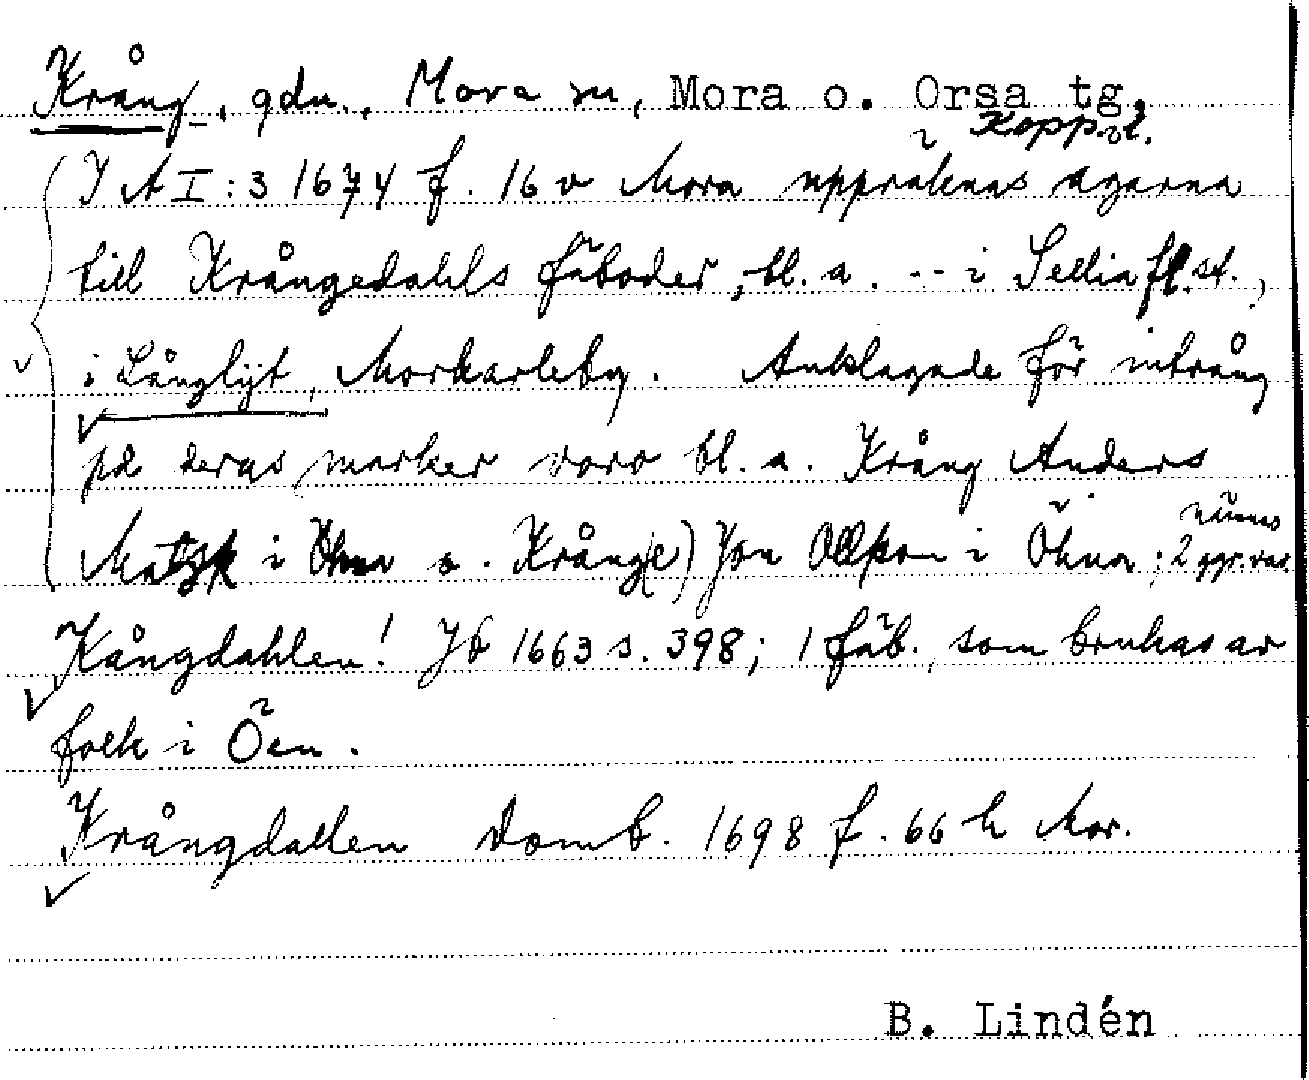 Krång, gdn., Mora sn, Mora o. Orsa tg.
Kopp. l.
I A I:3 1674 f. 16 v Mora uppräknas ägarna
till Krångedahls fäboder, bl. a. -- i Sellia fl. st.,
i Långlijt, Morkarleby. Anklagade för intrång
på deras marker voro bl. a. Krång Anders
i Öhna o. Krång(e) Jon i Öhna; 2 ggr.
Kångdahlen! Jb 1663 s. 398; 1 fäb., som brukas av
folk i Öen.
Krångdallen Domb. 1698 f. 66 h Mor.
B. Lindén